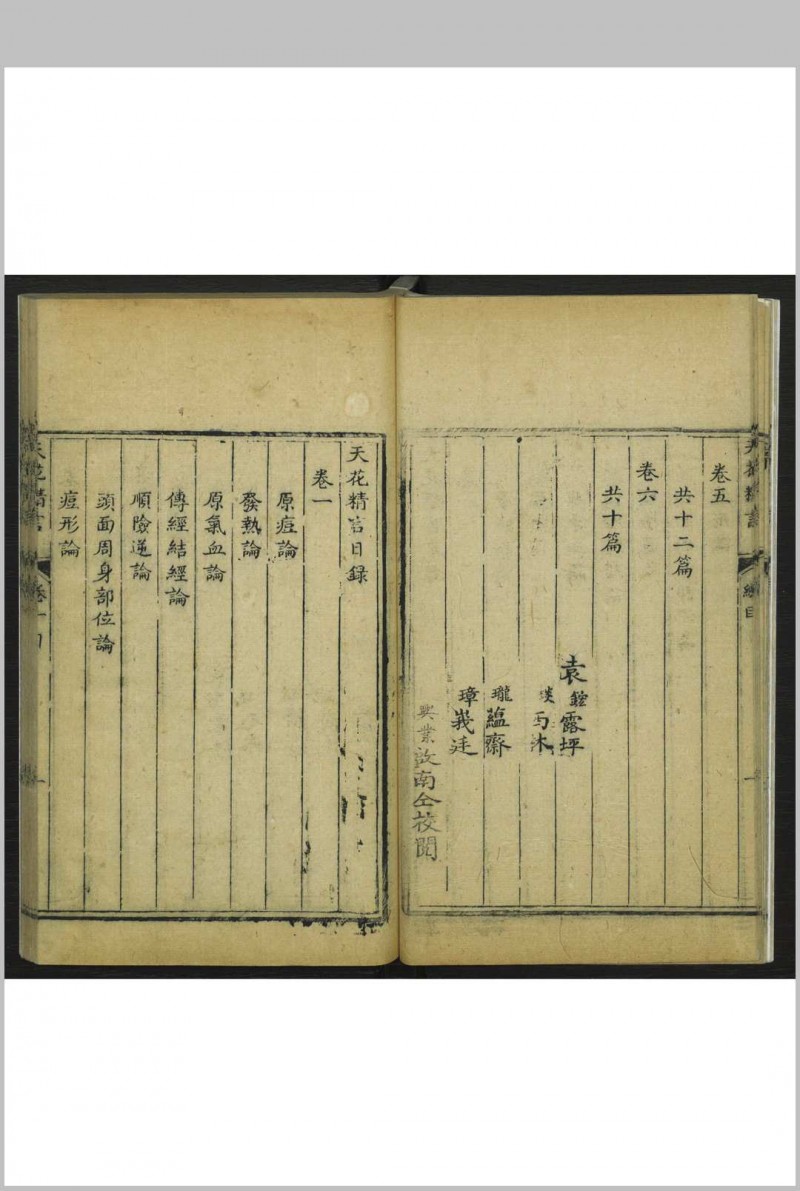 卷五
共十二篇
卷六
共十篇
袁
露坪
雨沐
瓏 蘊齋
璋 峩廷
興業 敘南仝校閱
總目
天花精言目錄
卷一
原痘論
發熱論
原氣血論
傳經結經論
順險逆論
頭面周身部位論
痘形論
天花精言
卷一目
一